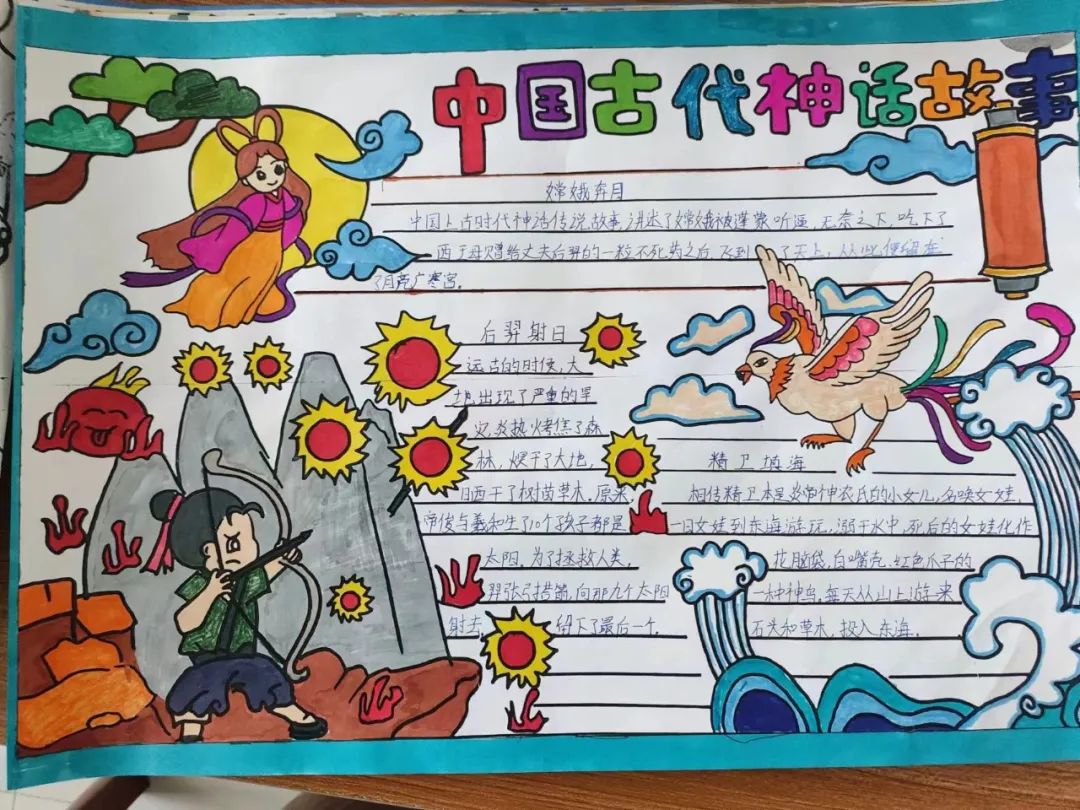 中国古代神话故事
嫦娥奔月
中国上古时代神话传说故事,讲述了嫦娥被逢蒙所逼,无奈之下,吃下了
西王母赠给丈夫后羿的一粒不死药之后,飞到了天上,从此便留在
了月亮广寒宫。
后羿射日
远古的时候,大
地出现了严重的旱
灾,炎热烤焦了森
林,烘干了大地,
晒干了树苗草木。原来,
帝俊与羲和生了10个孩子都是
太阳,为了拯救人类,
羿张弓搭箭,向那九个太阳
射去,留下了最后一个。
精卫填海
相传精卫本是炎帝神农氏的小女儿,名唤女娃,
一日女娃到东海游玩,溺于水中,死后的女娃化作
花脑袋,白嘴壳,红色爪子的
一种神鸟,每天从山上游来
石头和草木,投入东海。